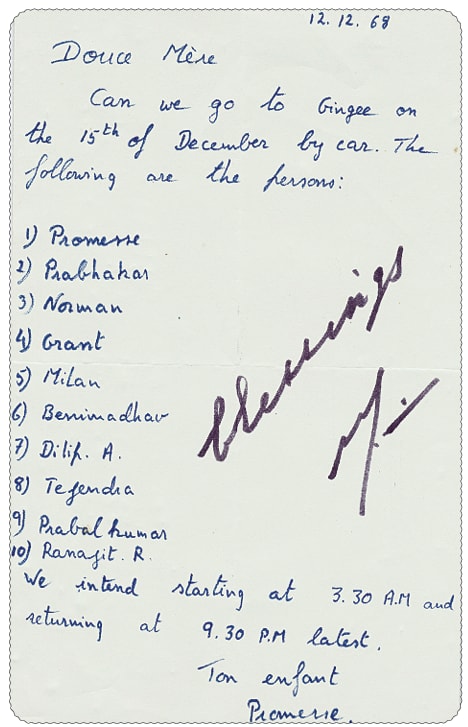 12.12.68
Douce Mère
Can we go to Gingee on
the 15th of December by car. The
following are the persons:
1) Promesse
2) Prabhakar
3) Norman
4) Grant
5) Milan
6) Benimadhav
7) Dilip. A.
8) Tejendra
9) Prabal kumar
10) Ranajit. R.
blessings
We intend starting at 3.30 A.M and
returning at 9.30 P.M latest.
Ton enfant
Promesse.